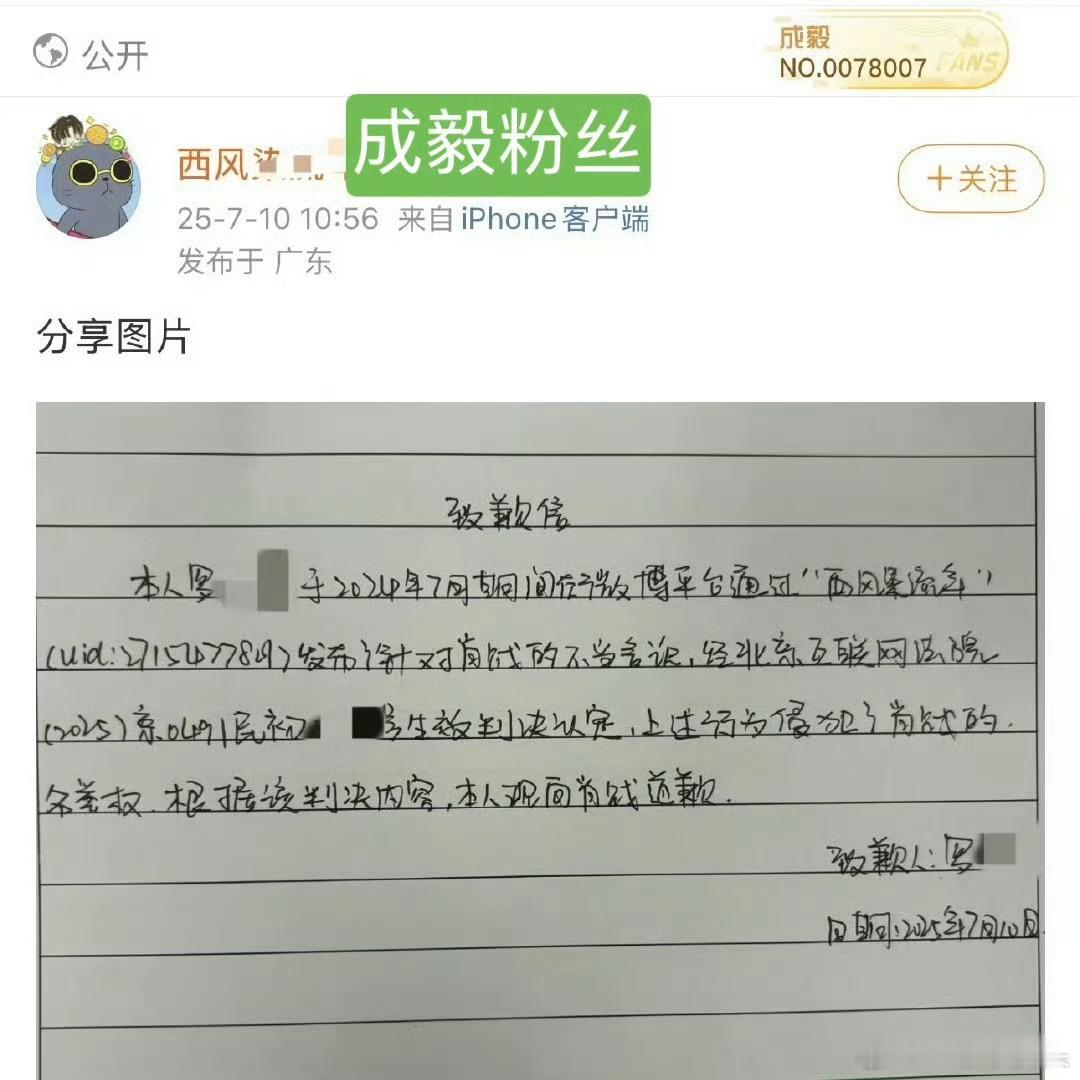 公开
成毅
NO.0078007
FANS
西风
成毅粉丝
+关注
25-7-10 10:56 来自 iPhone客户端
发布于 广东
分享图片
致歉信
本人罗 于2024年7月期间在微博平台通过“西风暴流年”
(uid:2715477849)发布了针对肖战的不当言论,经北京互联网法院
(2025)京0491民初 号生效判决认定,上述行为侵犯了肖战的
名誉权.根据该判决内容,本人现向肖战道歉.
致歉人:罗
日期:2025年7月10日.